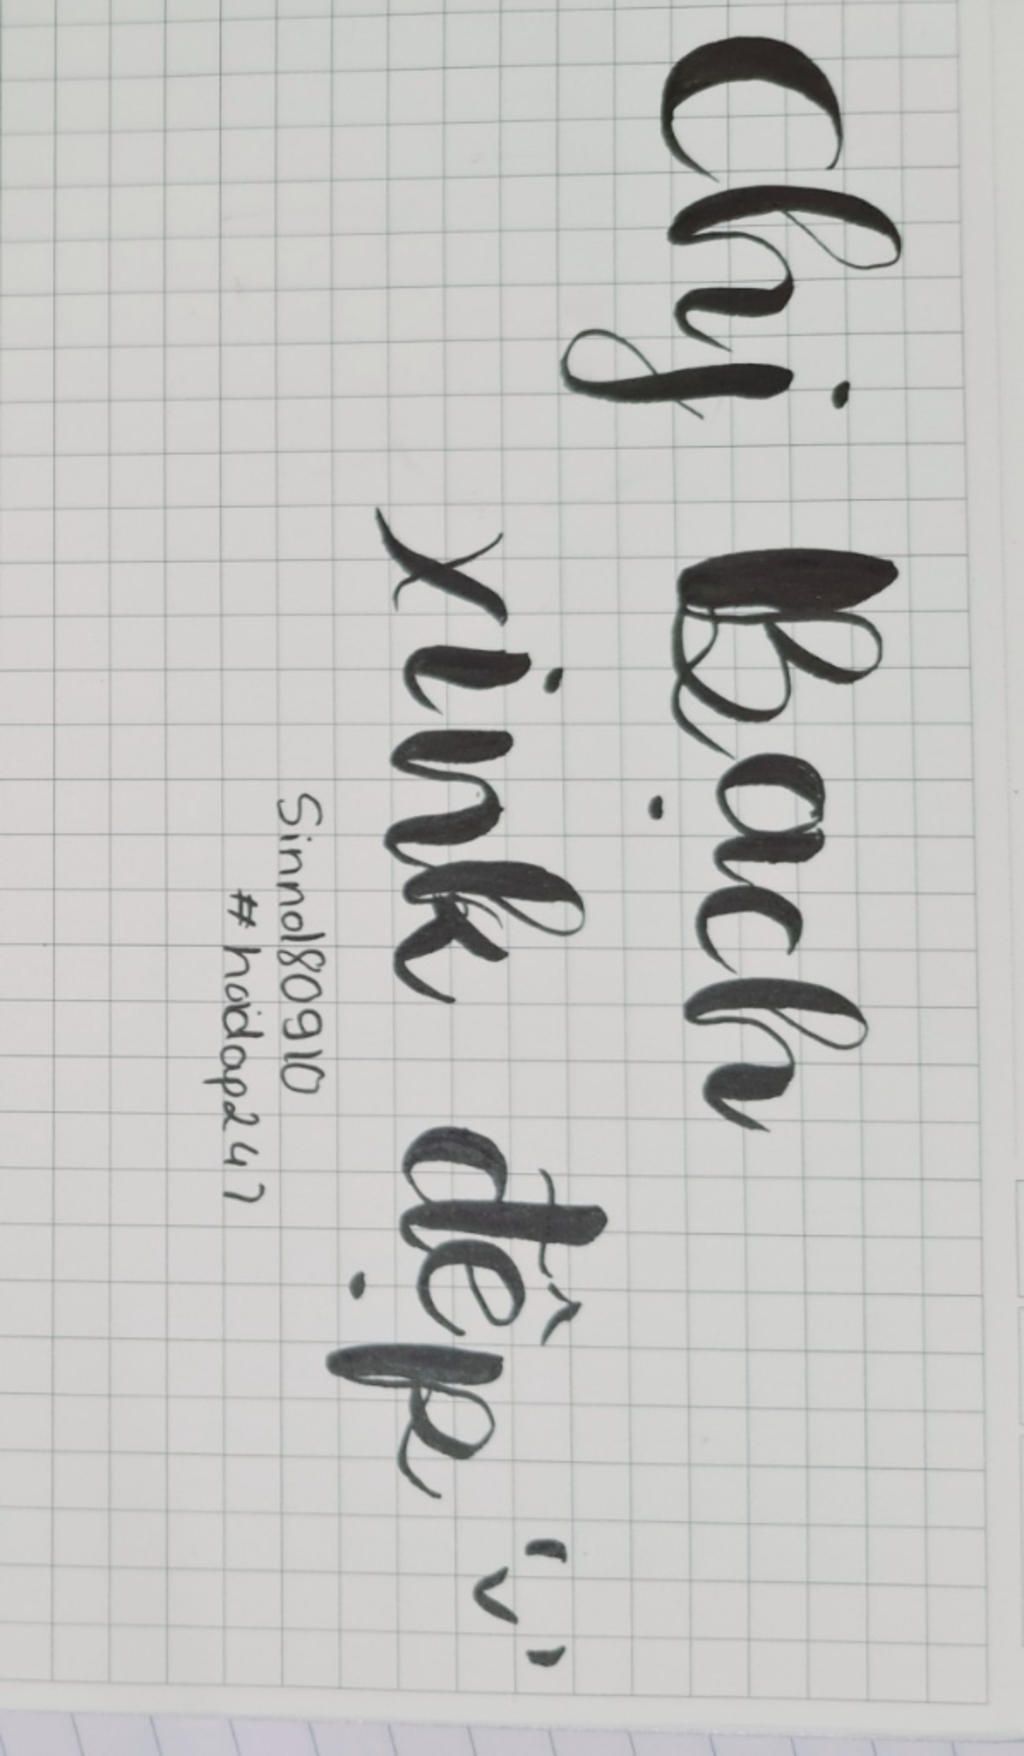 Chj Bạch
xink đệp "v"
Sinno180910
#hoidap247